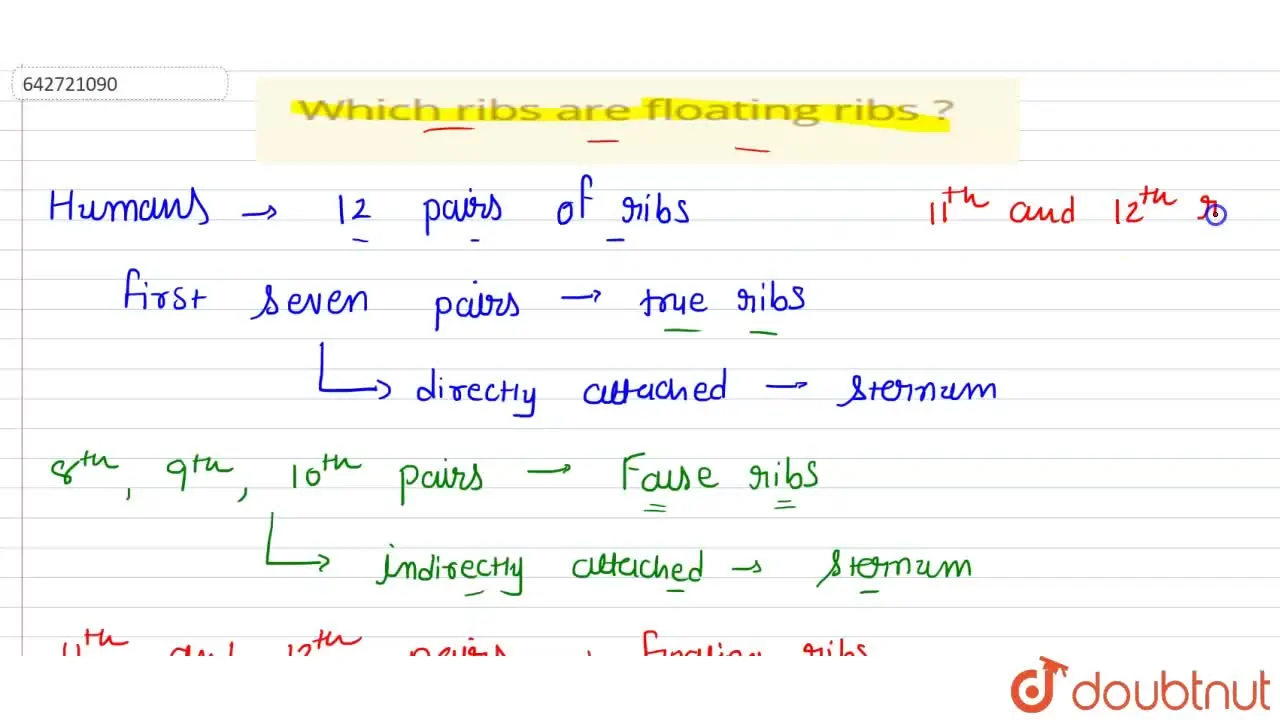 642721090
Which ribs are floating ribs ?
Humans → 12 pairs of ribs
11th and 12th r
first seven pairs → true ribs
directly attached → sternum
8th, 9th, 10th pairs → False ribs
indirectly attached → sternum
11th and 12th pairs → floating ribs
doubtnut